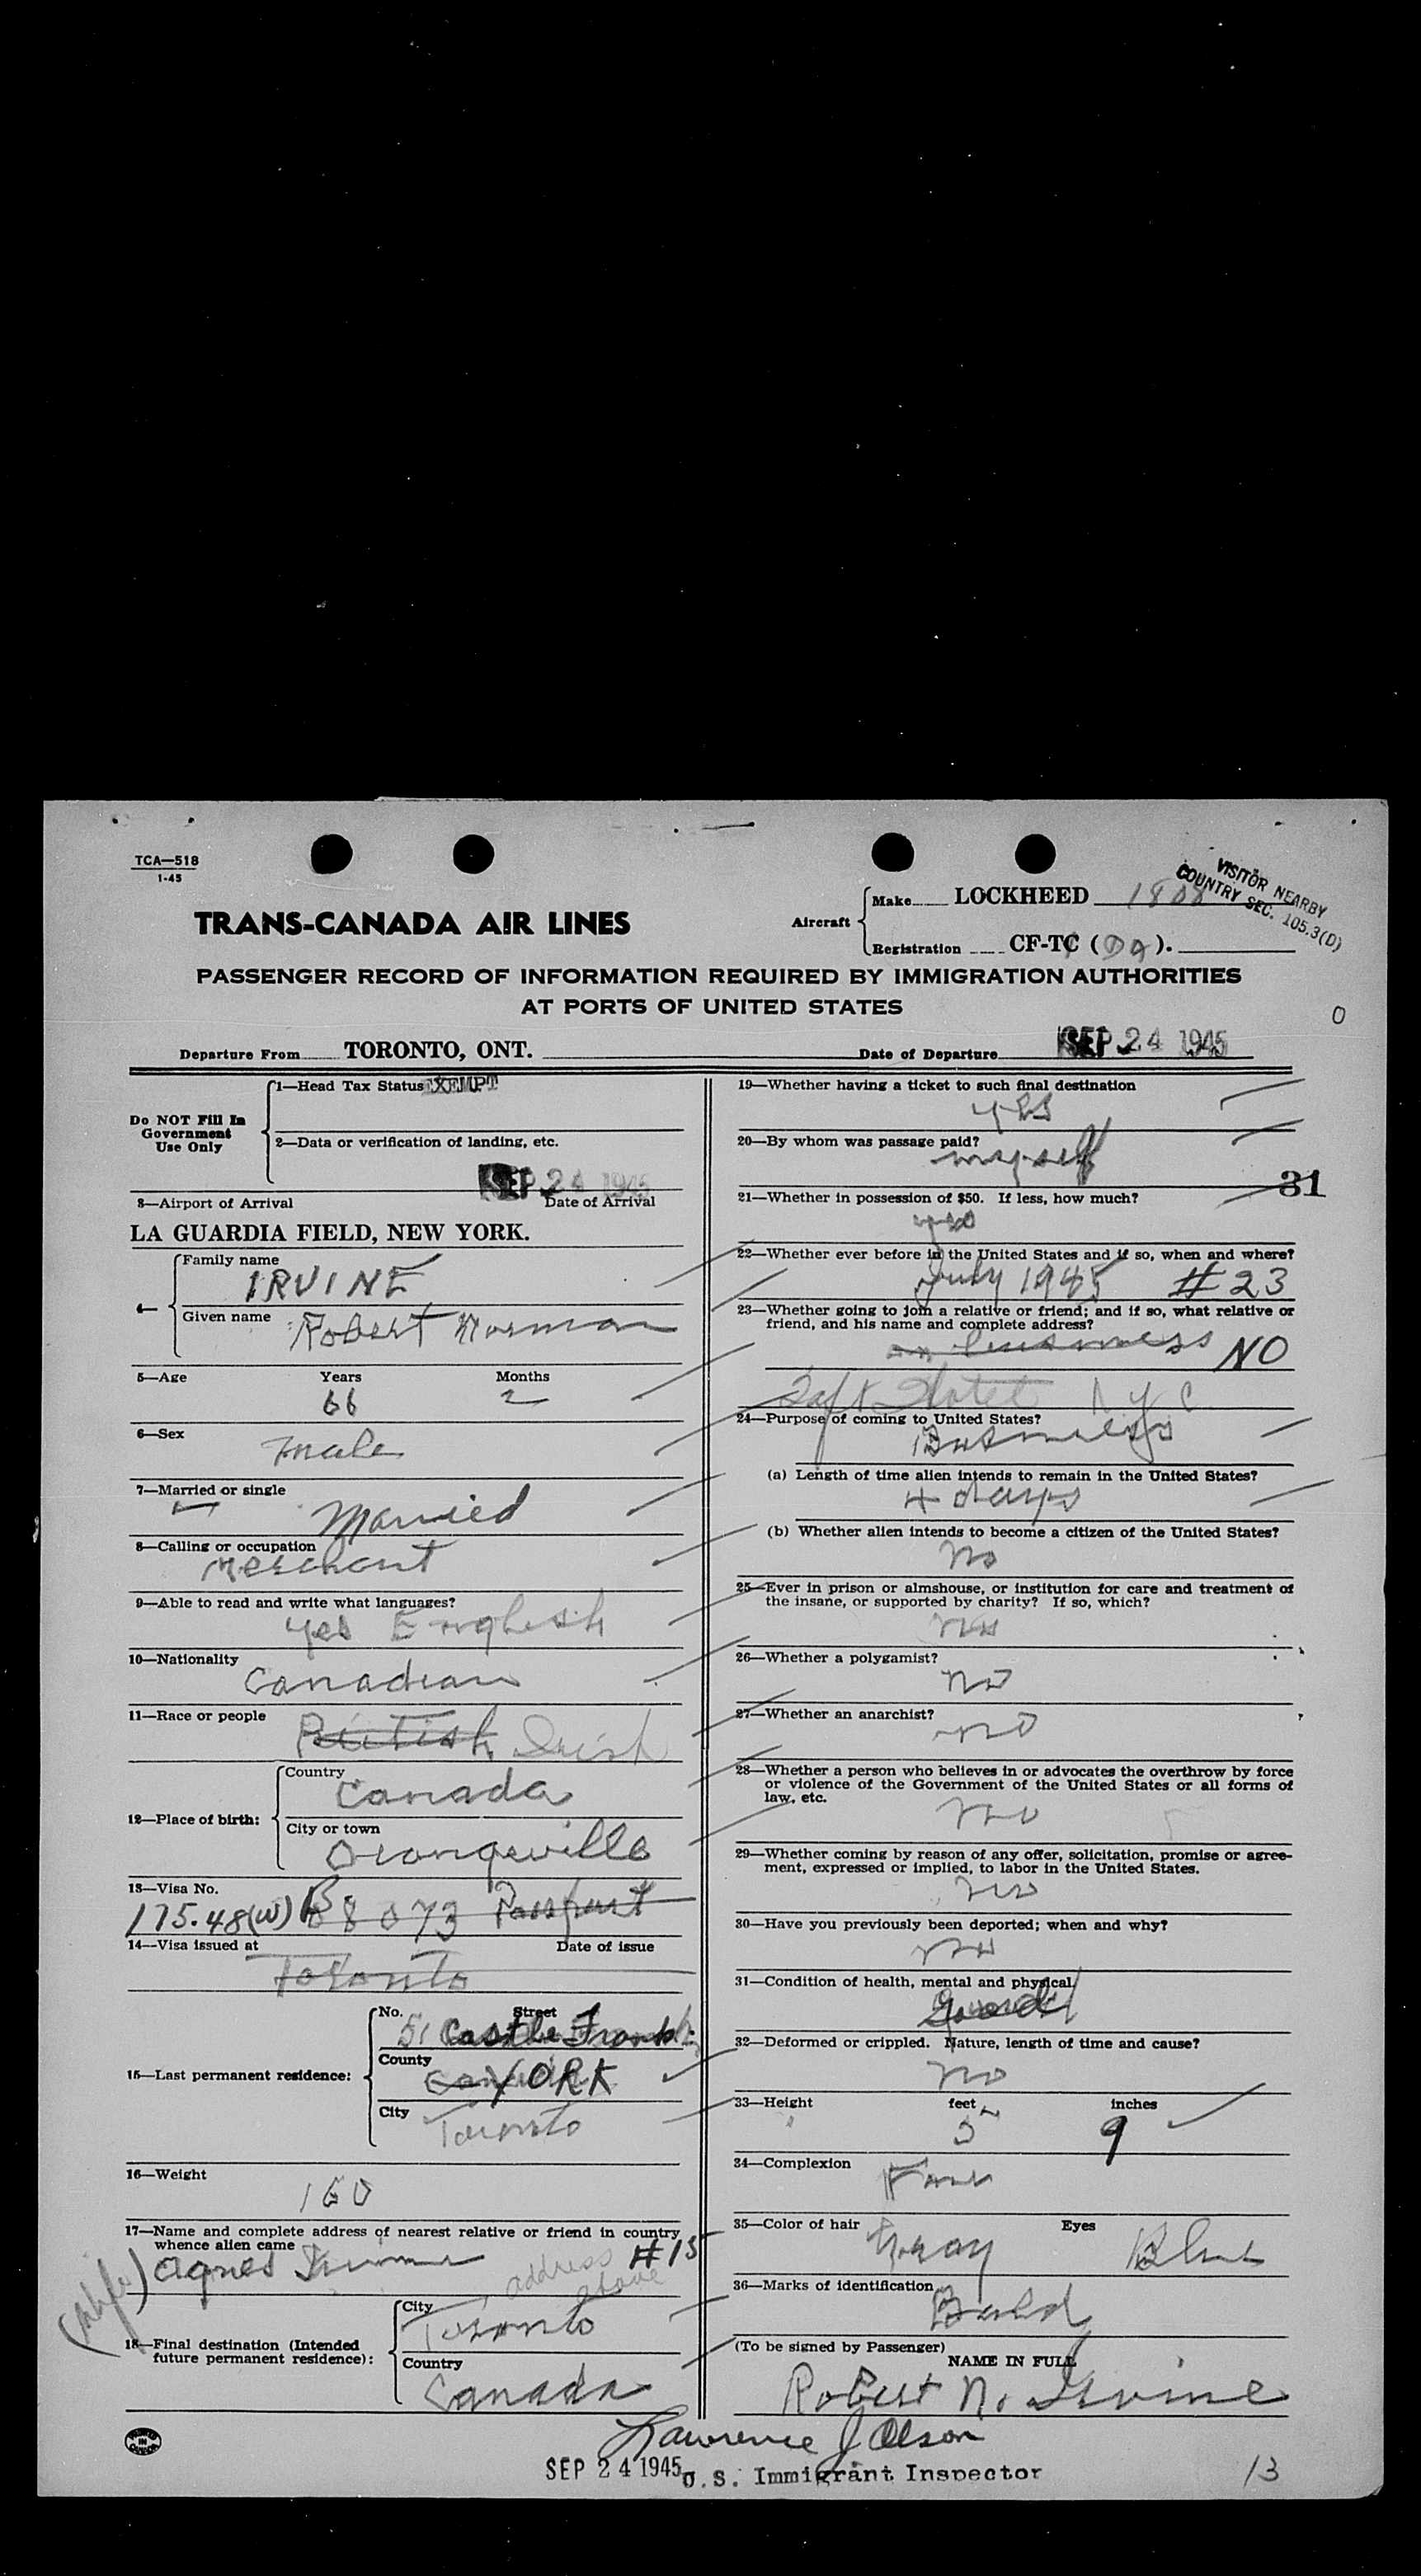 TCA—518
1-45
TRANS-CANADA AIR LINES
Aircraft
Make LOCKHEED 1808
Registration CF-TC ( ).
VISITOR NEARBY
COUNTRY SEC. 105.3(D)
PASSENGER RECORD OF INFORMATION REQUIRED BY IMMIGRATION AUTHORITIES
AT PORTS OF UNITED STATES
0
Departure From TORONTO, ONT. Date of Departure SEP 24 1945
Do NOT Fill In
Government
Use Only
1—Head Tax Status EXEMPT
2—Data or verification of landing, etc.
SEP 24 1945
3—Airport of Arrival Date of Arrival
LA GUARDIA FIELD, NEW YORK.
4—
Family name
IRVINE
Given name Robert Norman
5—Age Years Months
66 2
6—Sex
male
7—Married or single
Married
8—Calling or occupation
Merchant
9—Able to read and write what languages?
yes English
10—Nationality
Canadian
11—Race or people British Irish
12—Place of birth:
Country
Canada
City or town
Orangeville
13—Visa No.
175.48(W) B 8073 Passport
14—Visa issued at Date of issue
Toronto
15—Last permanent residence:
No. Street
51 Castle Frank
County
YORK
City
Toronto
16—Weight
160
17—Name and complete address of nearest relative or friend in country
whence alien came
(wife) Agnes Irvine address above #15
18—Final destination (Intended
future permanent residence):
City
Toronto
Country
Canada
19—Whether having a ticket to such final destination
yes
20—By whom was passage paid?
myself
31
21—Whether in possession of $50. If less, how much?
yes
22—Whether ever before in the United States and if so, when and where?
July 1945 #23
23—Whether going to join a relative or friend; and if so, what relative or
friend, and his name and complete address?
on business NO
Taft Hotel N Y C
24—Purpose of coming to United States?
Business
(a) Length of time alien intends to remain in the United States?
4 days
(b) Whether alien intends to become a citizen of the United States?
no
25—Ever in prison or almshouse, or institution for care and treatment of
the insane, or supported by charity? If so, which?
no
26—Whether a polygamist?
no
27—Whether an anarchist?
no
28—Whether a person who believes in or advocates the overthrow by force
or violence of the Government of the United States or all forms of
law, etc.
no
29—Whether coming by reason of any offer, solicitation, promise or agree-
ment, expressed or implied, to labor in the United States.
no
30—Have you previously been deported; when and why?
no
31—Condition of health, mental and physical
good
32—Deformed or crippled. Nature, length of time and cause?
no
33—Height feet inches
5 9
34—Complexion
Fair
35—Color of hair Eyes
Gray Blue
36—Marks of identification
Bald
(To be signed by Passenger)
NAME IN FULL
Robert N. Irvine
Lawrence J Olson
SEP 24 1945 U.S. Immigrant Inspector
13